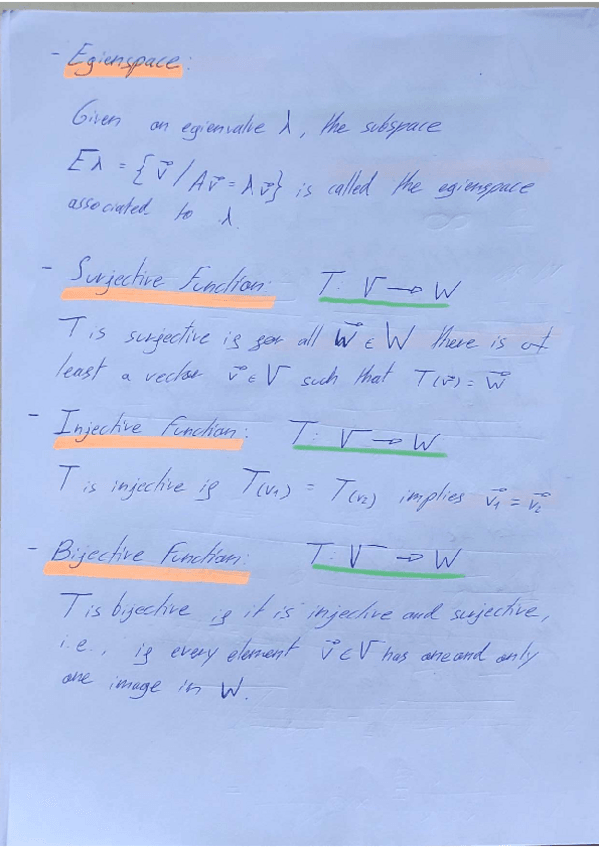 - Egienspace:
Given an egienvalue λ, the subspace
Eλ = {v⃗ / Av⃗ = λv⃗} is called the egienspace
associated to λ.
- Surjective Function: T: V → W
T is surjective if for all w⃗ ∈ W there is at
least a vector v⃗ ∈ V such that T(v⃗) = w⃗
- Injective Function: T: V → W
T is injective if T(v₁) = T(v₂) implies v⃗₁ = v⃗₂
- Bijective Function: T: V → W
T is bijective if it is injective and surjective,
i.e., if every element v⃗ ∈ V has one and only
one image in W.